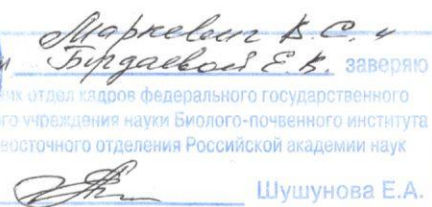 Маркевич В.С. и
Бурдаевой Е.В. заверяю
отдел кадров федерального государственного
учреждения науки Биолого-почвенного института
восточного отделения Российской академии наук
Шушунова Е.А.